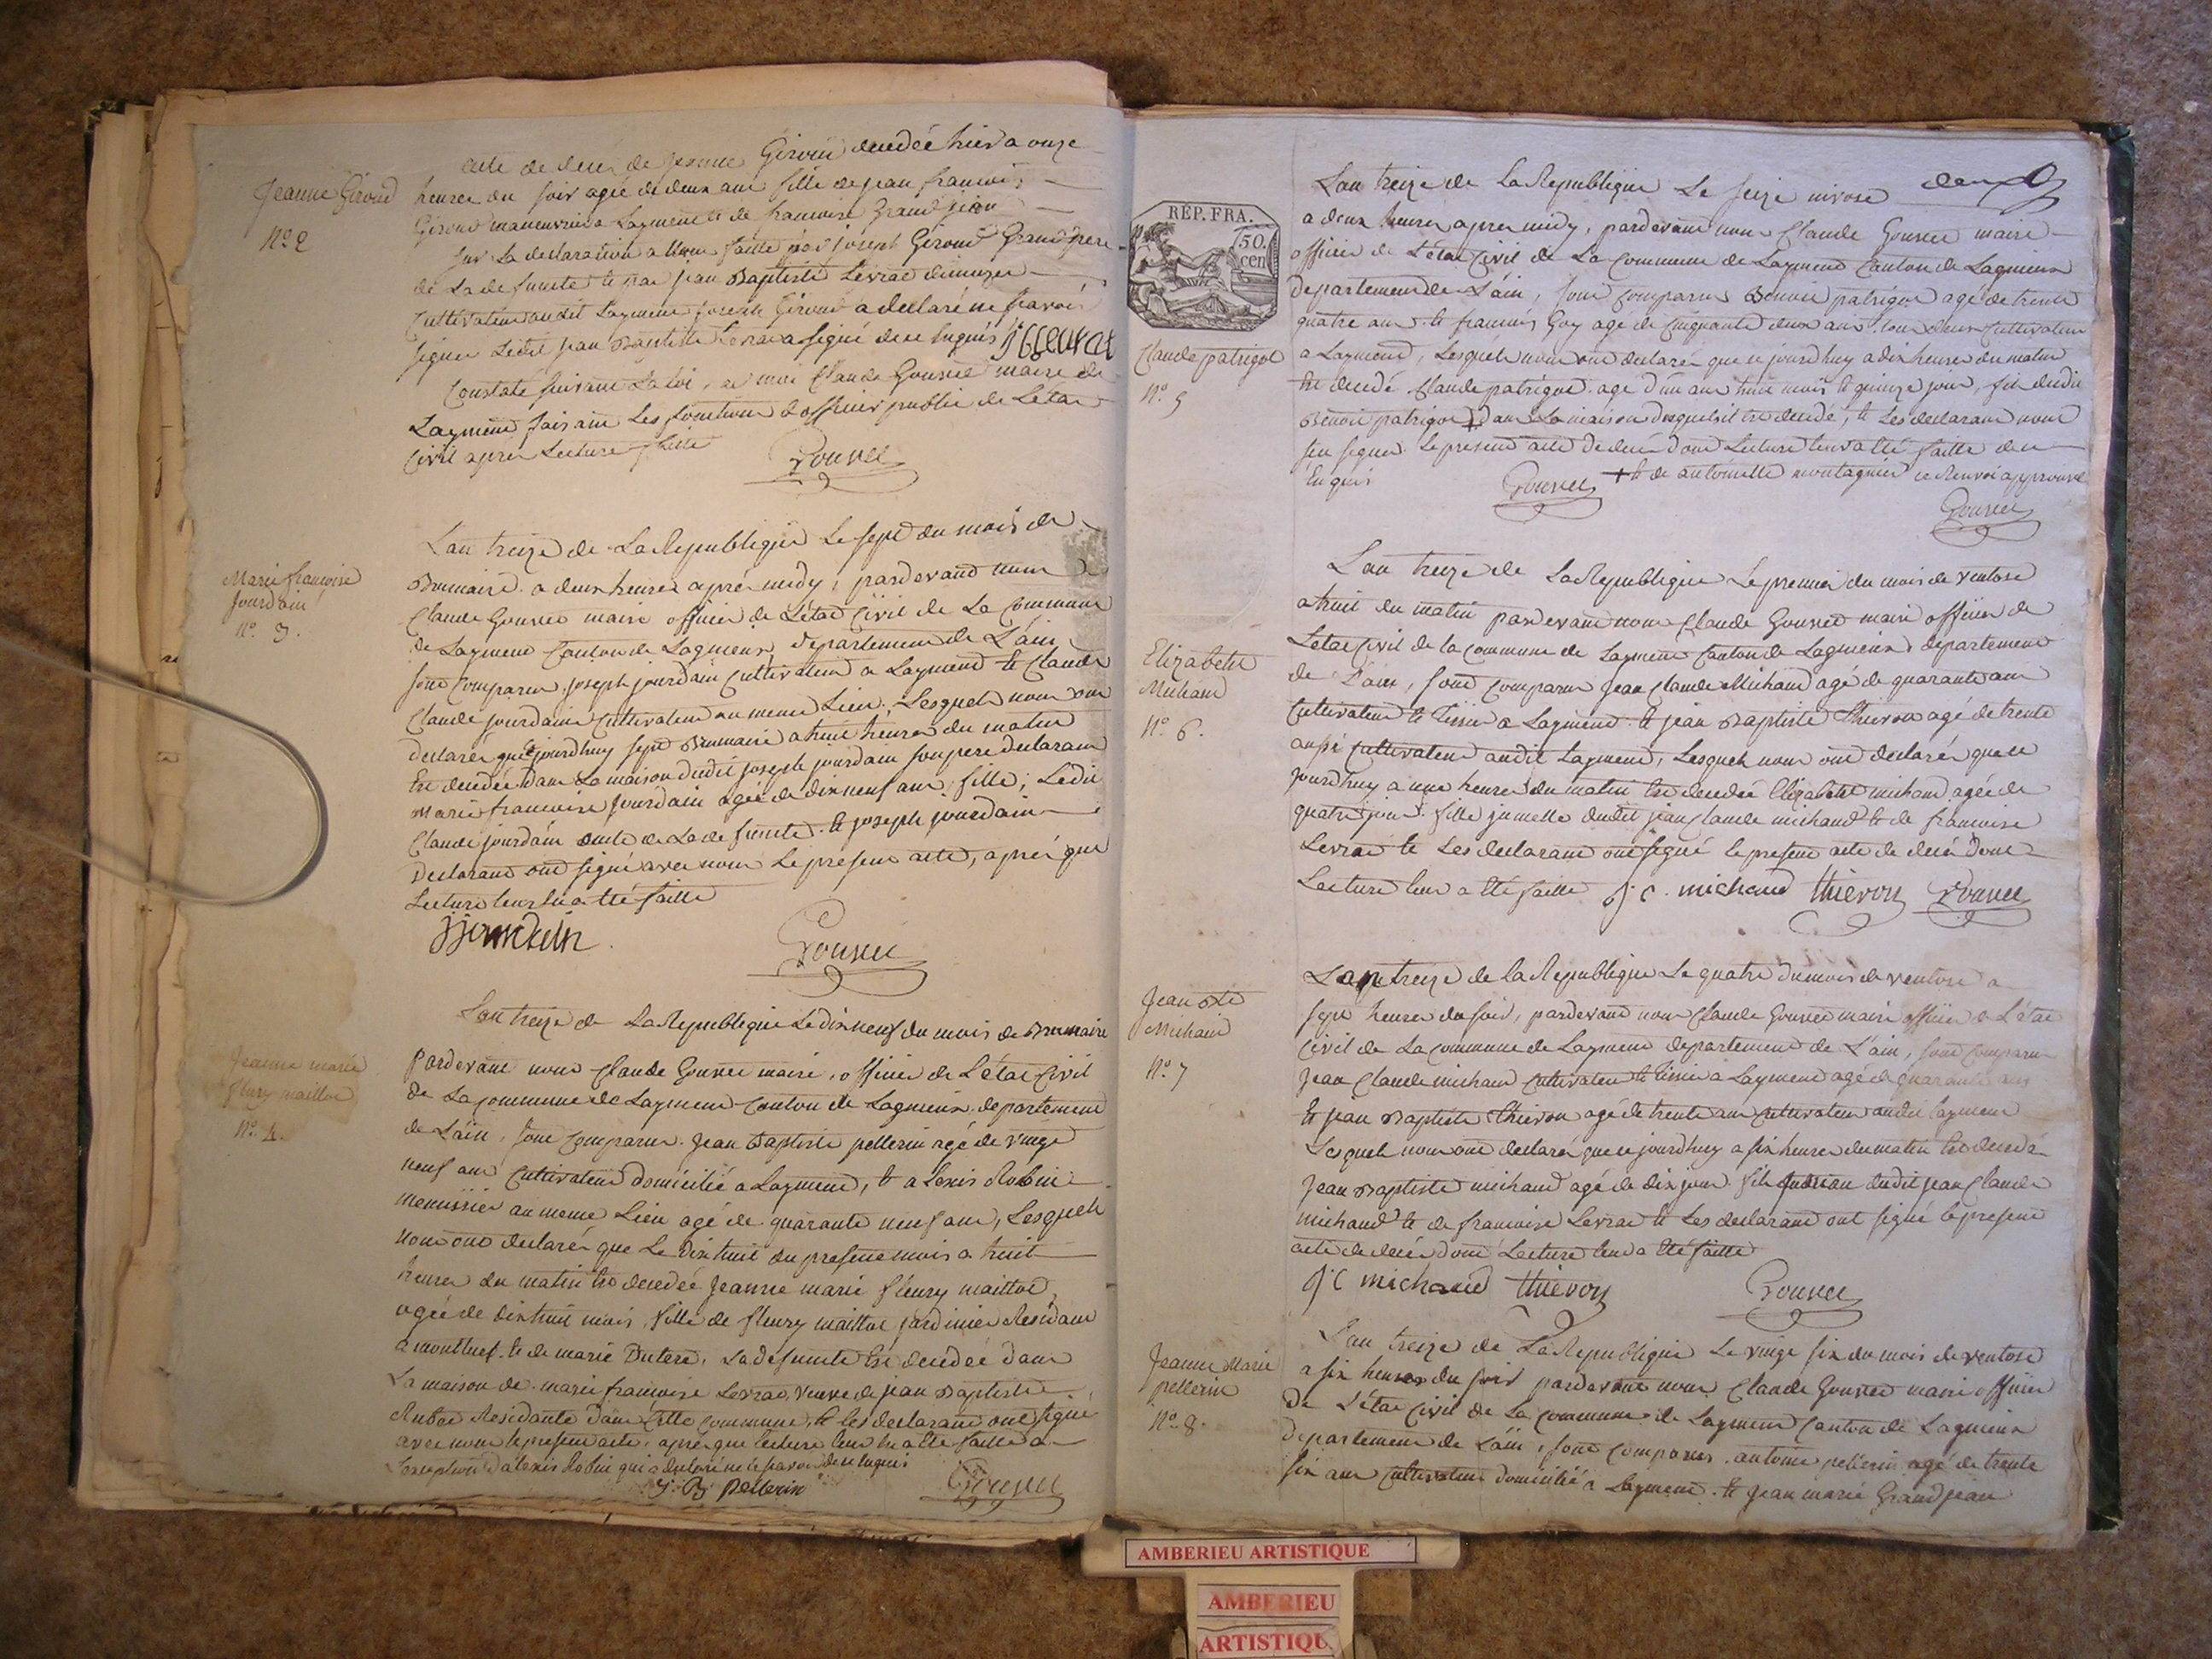 Jeanne Giroud
No. 2
acte de deces de jeanne Giroud decedée hier a onze
heures du soir agée de deux ans fille de jean francois
Giroud manouvrier a Layment et de francoise Grand jean
sur la declaration a nous faitte par joseph Giroud Grand pere
de la defuncte et par jean Baptiste Levrat
Cultivateur audit Layment joseph Giroud a declaré ne savoir
signer Ledit jean Baptiste Levrat a signé de ce enquis JB Levrat
Constaté suivant La Loi, par moi Claude Gouvet maire de
Layment faisant Les fonctions d'officier public de L'état
Civil apres Lecture faitte
Gouvet
Marie francoise
Jourdain
No. 3.
L'an treize de La Republique Le sept du mois de
Brumaire a deux heures apres midy, pardevant nous
Claude Gouvet maire officier de L'état Civil de La Commune
de Layment Canton de Lagnieux departement de L'ain
sont Comparus joseph jourdain Cultivateur a Layment et Claude
Claude jourdain Cultivateur au meme Lieu, Lesquels nous ont
declarés que cejourdhuy sept Brumaire a huit heures du matin
Est decedée dans La maison dudit joseph jourdain son pere declarant
Marie francoise Jourdain agée de dix neuf ans fille; Ledit
Claude jourdain oncle de La defuncte. et joseph jourdain
Declarants ont signé avec nous Le present acte, aprés que
Lecture leur en a été faitte
j jourdain
Gouvet
Jeanne marie
fleury maillot
No. 4.
L'an treize de La Republique Le dix neuf du mois de Brumaire
Pardevant nous Claude Gouvet maire, officier de L'état Civil
de La Commune de Layment Canton de Lagnieux departement
de L'ain, sont Comparus. Jean Baptiste pellerin agé de vingt
neuf ans Cultivateur domicilié a Layment, et alexis Robin
menuissier au meme Lieu agé de quarante neuf ans, Lesquels
nous ont declarés que Le dix huit du present mois a huit
heures du matin est decedée Jeanne marie fleury maillot,
agée de dix huit mois fille de fleury maillot jardinier Residant
a montluel. et de marie Dutere, La defuncte Est decedée dans
La maison de marie francoise Levrat, veuve de jean Baptiste
Residante dans Cette Commune, et les declarants ont signé
avec nous le present acte, apres que lecture leur en a été faitte a
l'exception d'alexis Robin qui a declaré ne le savoir de ce enquis
J. B Pellerin
Gouvet
deux
REP. FRA.
50.
cen
Claude patrigot
No. 5
L'an treize de La Republique Le seize nivose
a deux heures apres midy, pardevant nous Claude Gouvet maire
officier de L'état Civil de La Commune de Layment Canton de Lagnieux
departement de L'ain, sont Comparus Benoit patrigot agé de trente
quatre ans. et francois Guy agé de Cinquante deux ans tous deux Cultivateurs
a Layment, Lesquels nous ont declarés que ce jourdhuy a dix heures du matin
Est decedé Claude patrigot agé d'un an huit mois et quinze jours, fils dudit
Benoit patrigot + dans La maison duquel il est decedé, et Les declarants n'ont
seu signer Le present acte de deces dont Lecture leur a été faitte de ce
Enquis
Gouvet
+ et de antoinette montagnier ce Renvoi approuvé
Gouvet
Elizabeth
Michaud
No. 6.
L'an treize de La Republique Le premier du mois de ventose
a huit du matin pardevant nous Claude Gouvet maire officier de
L'état Civil de la Commune de Layment Canton de Lagnieux departement
de L'ain, sont Comparus Jean Claude Michaud agé de quarante ans
Cultivateur et tissier a Layment. et jean Baptiste Thievon agé de trente
aussi Cultivateur audit Layment, Lesquels nous ont declarés que ce
jourdhuy a une heure du matin Est decedée Elizabeth michaud agée de
quatre jours fille jumelle dudit jean Claude michaud et de francoise
Levrat et Les declarants ont signé le present acte de deces dont
Lecture leur a été faitte j. C. michaud thievon Gouvet
Jean Bte
Michaud
No. 7
L'an treize de la Republique Le quatre du mois de ventose a
sept heures du soir, pardevant nous Claude Gouvet maire officier de L'état
Civil de La Commune de Layment departement de L'ain, sont Comparus
Jean Claude michaud Cultivateur et tissier a Layment agé de quarante ans
Et jean Baptiste Thievon agé de trente ans Cultivateur audit Layment
Lesquels nous ont declarés que ce jourdhuy a six heures du matin Est decedé
Jean Baptiste michaud agé de dix jours fils dudit jean Claude
michaud et de francoise Levrat et Les declarants ont signé le present
acte de deces dont Lecture leur a été faitte
j C michaud thievon Gouvet
Jeanne Marie
pellerin
No. 8.
L'an treize de La Republique Le vingt six du mois de ventose
a six heures du soir pardevant nous Claude Gouvet maire officier
De L'état Civil de La Commune de Layment Canton de Lagnieux
departement de L'ain, sont Comparus. antoine pellerin agé de trente
six ans Cultivateur domicilié a Layment. et Jean marie Grandjean
AMBERIEU ARTISTIQUE
AMBERIEU
ARTISTIQU